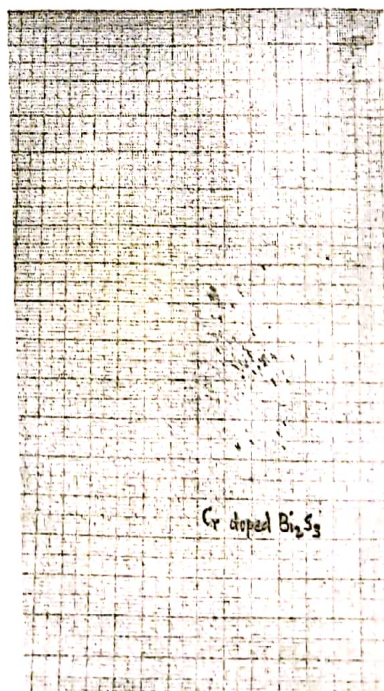 Cr doped Bi₂S₃